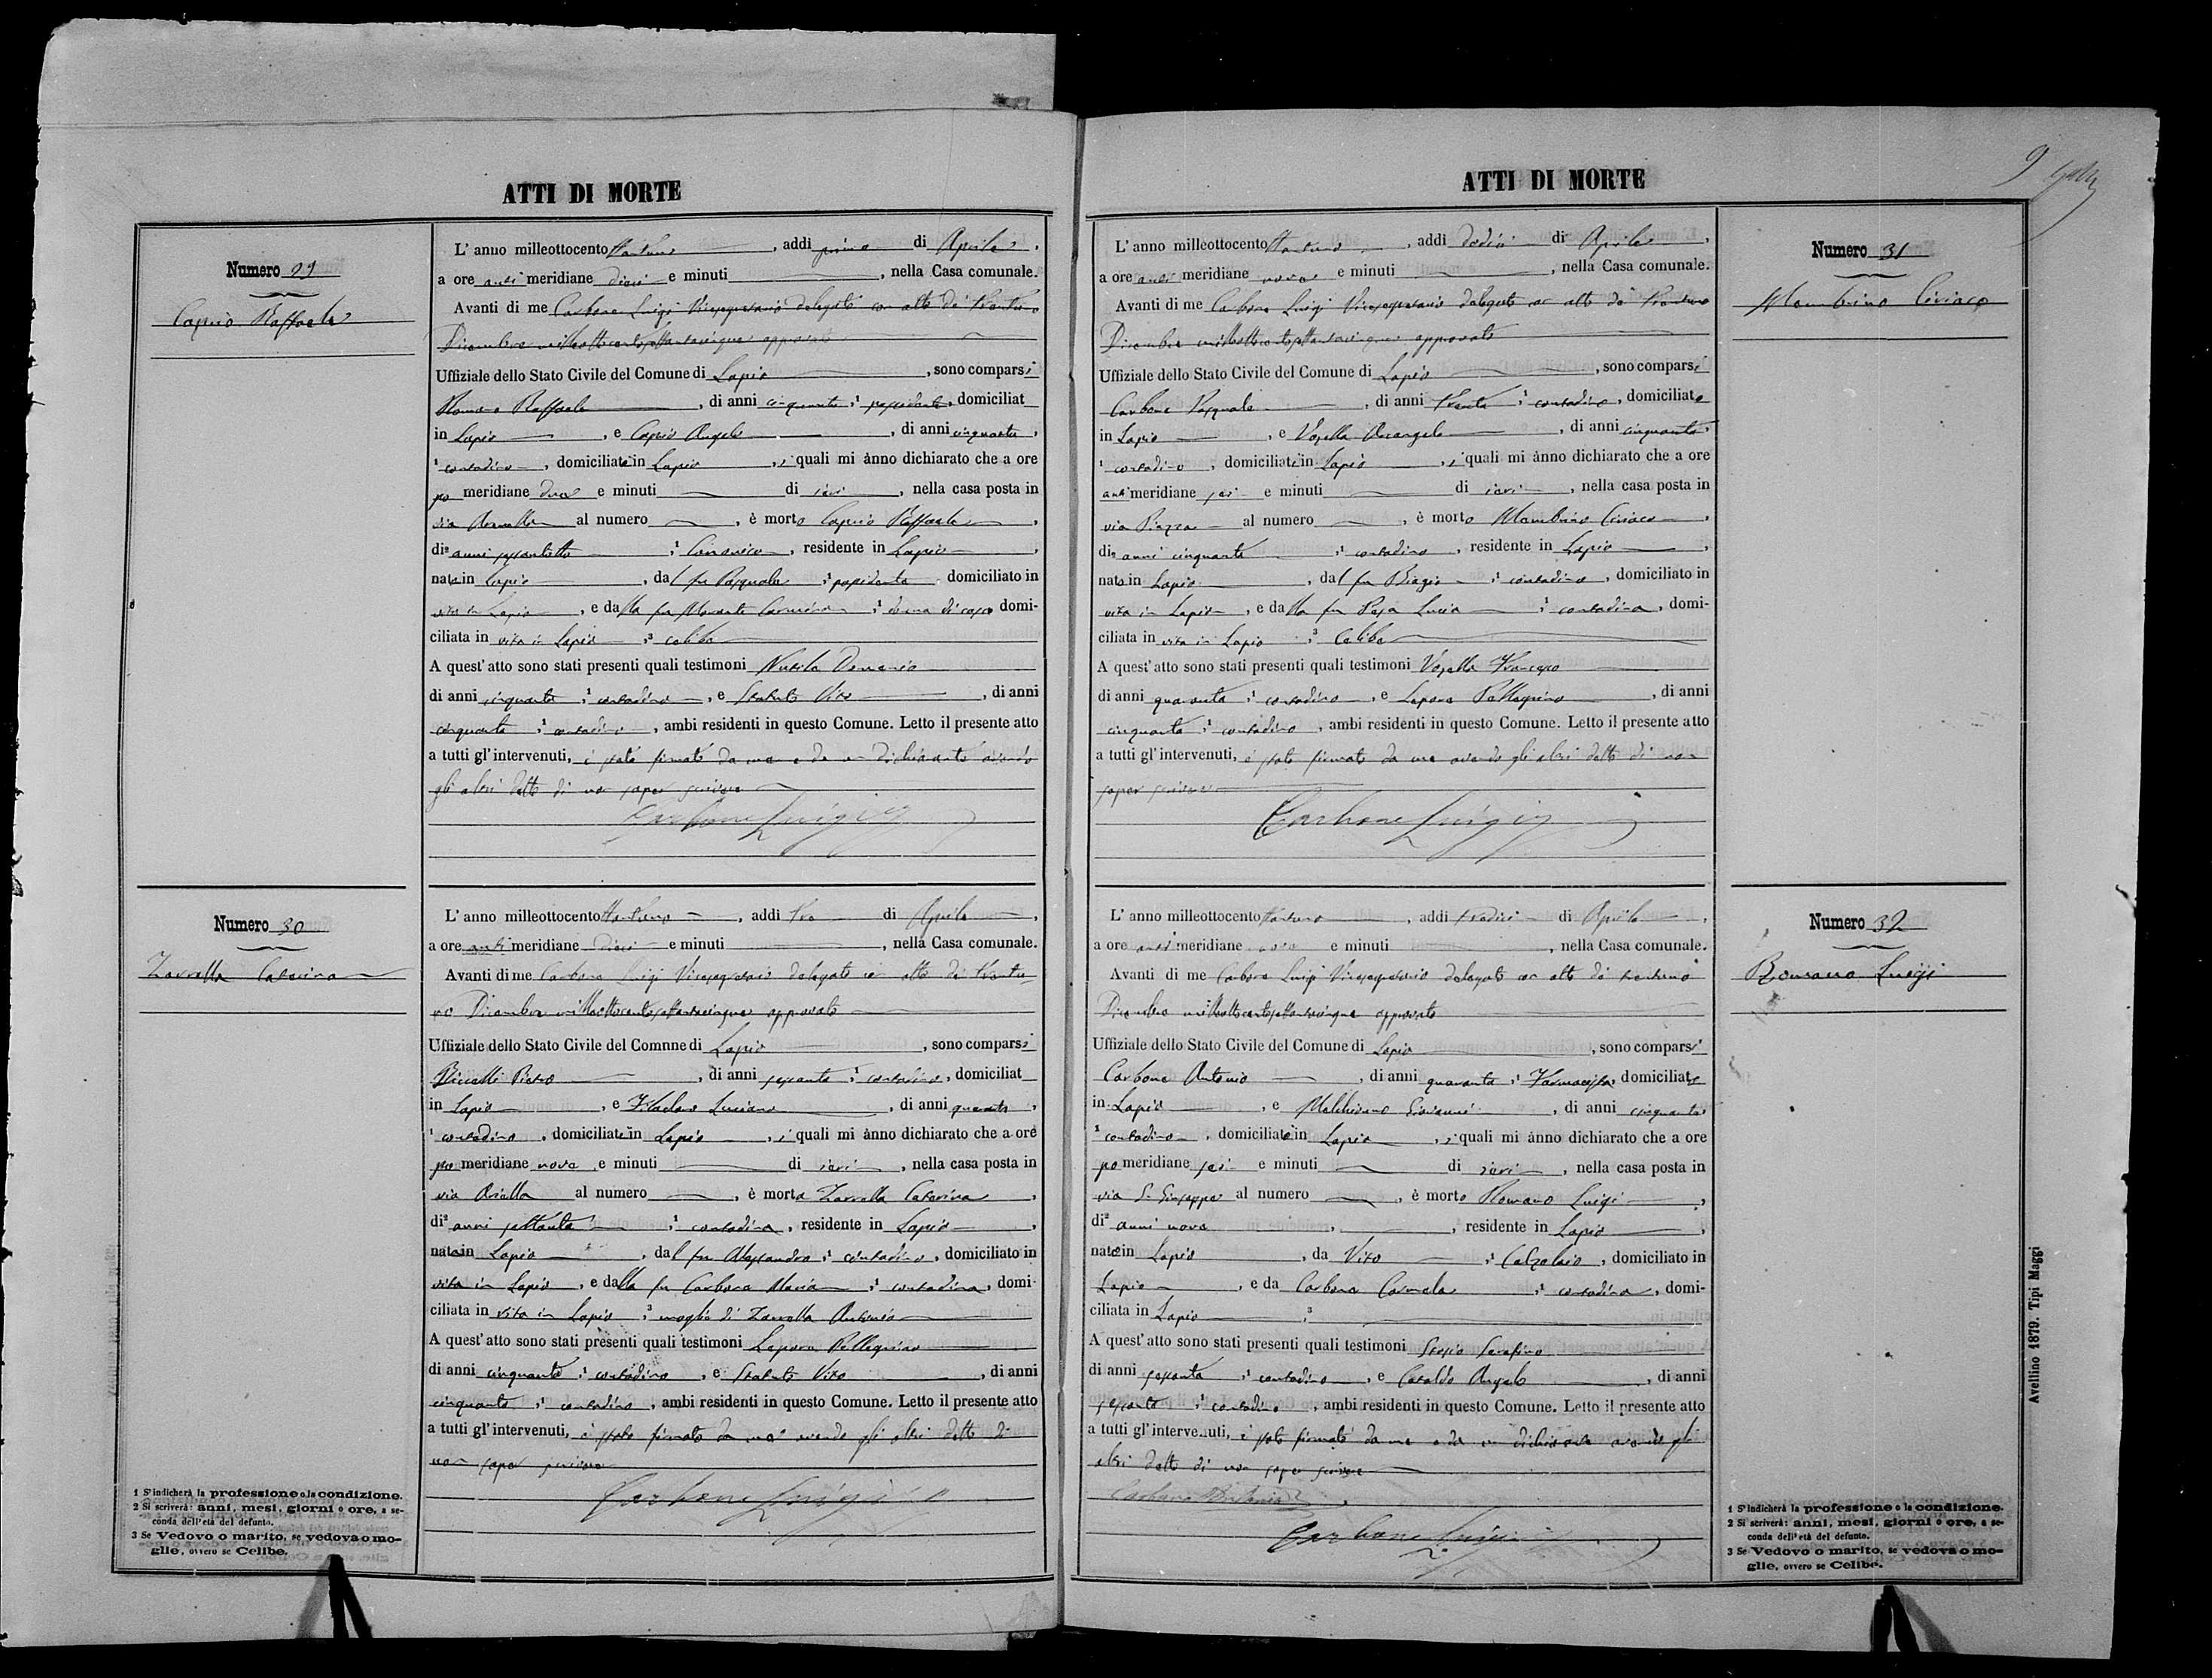 ATTI DI MORTE
Numero 29
Caprio Raffaele
L' anno milleottocento ottantuno, addì primo di Aprile,
a ore anti meridiane dieci e minuti, nella Casa comunale.
Avanti di me Carbone Luigi Vicesegretario delegato con atto de' trentuno
Dicembre milleottocentosettantacinque approvato
Uffiziale dello Stato Civile del Comune di Lapio, sono comparsi
Romano Raffaele, di anni cinquanta, possidente, domiciliat
in Lapio, e Caprio Angelo, di anni cinquanta,
contadino, domiciliato in Lapio, i quali mi ànno dichiarato che a ore
po meridiane due e minuti di ieri, nella casa posta in
via al numero, è morto Caprio Raffaele,
di anni sessantotto, Canonico, residente in Lapio,
nato in Lapio, dal fu Pasquale, possidente, domiciliato in
vita in Lapio, e dalla fu Carmina, donna di casa domi-
ciliata in vita in Lapio, 3 celibe
A quest' atto sono stati presenti quali testimoni Nutile Domenico
di anni cinquanta, 1 contadino, e Statuto Vito, di anni
cinquanta, 1 contadino, ambi residenti in questo Comune. Letto il presente atto
a tutti gl' intervenuti, è stato firmato da me e da un dichiarante avendo
gli altri detto di non saper scrivere
Carbone Luigi
Numero 30
Zarrella Caterina
L' anno milleottocento ottantuno, addì tre di Aprile,
a ore anti meridiane dieci e minuti, nella Casa comunale.
Avanti di me Carbone Luigi Vicesegretario delegato con atto de' trentu-
no Dicembre milleottocentosettantacinque approvato
Uffiziale dello Stato Civile del Comnne di Lapio, sono comparsi
Pietro, di anni sessanta, 1 contadino, domiciliat
in Lapio, e Luciano, di anni quaranta,
1 contadino, domiciliate in Lapio, i quali mi ànno dichiarato che a ore
po meridiane nove e minuti di ieri, nella casa posta in
via Ariella al numero, è morta Zarrella Caterina,
di 2 anni settanta, 1 contadina, residente in Lapio,
nata in Lapio, dal fu Alessandro, 1 contadino, domiciliato in
vita in Lapio, e dalla fu Carbone Maria, 1 contadina, domi-
ciliata in vita in Lapio, 3 moglie di Zarrella Antonio
A quest' atto sono stati presenti quali testimoni Lepore Pellegrino
di anni cinquanta, 1 contadino, e Statuto Vito, di anni
cinquanta, 1 contadino, ambi residenti in questo Comune. Letto il presente atto
a tutti gl' intervenuti, è stato firmato da me avendo gli altri detto di
non saper scrivere
Carbone Luigi
1 S' indicherà la professione o la condizione.
2 Si scriverà: anni, mesi, giorni o ore, a se-
conda dell' età del defunto.
3 Se Vedovo o marito, se vedova o mo-
glie, ovvero se Celibe.
ATTI DI MORTE
9
Numero 31
Mambrino Ciriaco
L' anno milleottocento ottantuno, addì dodici di Aprile,
a ore anti meridiane nove e minuti, nella Casa comunale.
Avanti di me Carbone Luigi Vicesegretario delegato con atto de' trentuno
Dicembre milleottocentosettantacinque approvato
Uffiziale dello Stato Civile del Comune di Lapio, sono comparsi
Carbone Pasquale, di anni trenta, 1 contadino, domiciliato
in Lapio, e Vozella Arcangelo, di anni cinquanta,
1 contadino, domiciliati in Lapio, i quali mi ànno dichiarato che a ore
anti meridiane sei e minuti di ieri, nella casa posta in
via Piazza al numero, è morto Mambrino Ciriaco,
di 2 anni cinquanta, 1 contadino, residente in Lapio,
nato in Lapio, dal fu Biagio, 1 contadino, domiciliato in
vita in Lapio, e dalla fu Lucia, 1 contadina, domi-
ciliata in vita in Lapio, 3 Celibe
A quest' atto sono stati presenti quali testimoni Vozella Francesco
di anni quaranta, 1 contadino, e Lepore Pellegrino, di anni
cinquanta, 1 contadino, ambi residenti in questo Comune. Letto il presente atto
a tutti gl' intervenuti, è stato firmato da me avendo gli altri detto di non
saper scrivere
Carbone Luigi
Numero 32
Romano Luigi
L' anno milleottocento ottantuno, addì tredici di Aprile,
a ore anti meridiane nove e minuti, nella Casa comunale.
Avanti di me Carbone Luigi Vicesegretario delegato con atto de' trentuno
Dicembre milleottocentosettantacinque approvato
Uffiziale dello Stato Civile del Comune di Lapio, sono comparsi
Carbone Antonio, di anni quaranta, 1 Farmacista, domiciliato
in Lapio, e Giovanni, di anni cinquanta
1 contadino, domiciliato in Lapio, i quali mi ànno dichiarato che a ore
po meridiane sei e minuti di ieri, nella casa posta in
via S. Giuseppe al numero, è morto Romano Luigi,
di 2 anni nove, residente in Lapio,
nato in Lapio, da Vito, 1 Calzolaio, domiciliato in
Lapio, e da Carbone Carmela, 1 contadina, domi-
ciliata in Lapio, 3
A quest' atto sono stati presenti quali testimoni Serafino
di anni sessanta, 1 contadino, e Cataldo Angelo, di anni
sessanta, 1 contadino, ambi residenti in questo Comune. Letto il presente atto
a tutti gl' intervenuti, è stato firmato da me e da un dichiarante avendo gli
altri detto di non saper scrivere
Carbone Antonio
Carbone Luigi
1 S' indicherà la professione o la condizione.
2 Si scriverà: anni, mesi, giorni o ore, a se-
conda dell' età del defunto.
3 Se Vedovo o marito, se vedova o mo-
glie, ovvero se Celibe.
Avellino 1879. Tipi Maggi